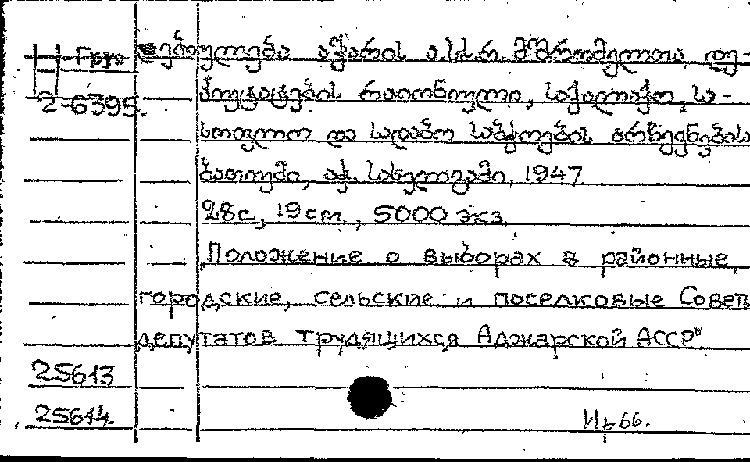 Н-Груз დებულება აჭარის ა.ს.ს.რ. მშრომელთა დე-
2-6395. პუტატების რაიონული, საქალაქო, სა-
სოფლო და სადაბო საბჭოების არჩევნების
ბათუმი, აჭ. სახელგამი, 1947.
28с., 19cm., 5000 экз.
„Положение о выборах в районные,
городские, сельские и поселковые Советы
депутатов трудящихся Аджарской АССР"
25613
25614. 66.